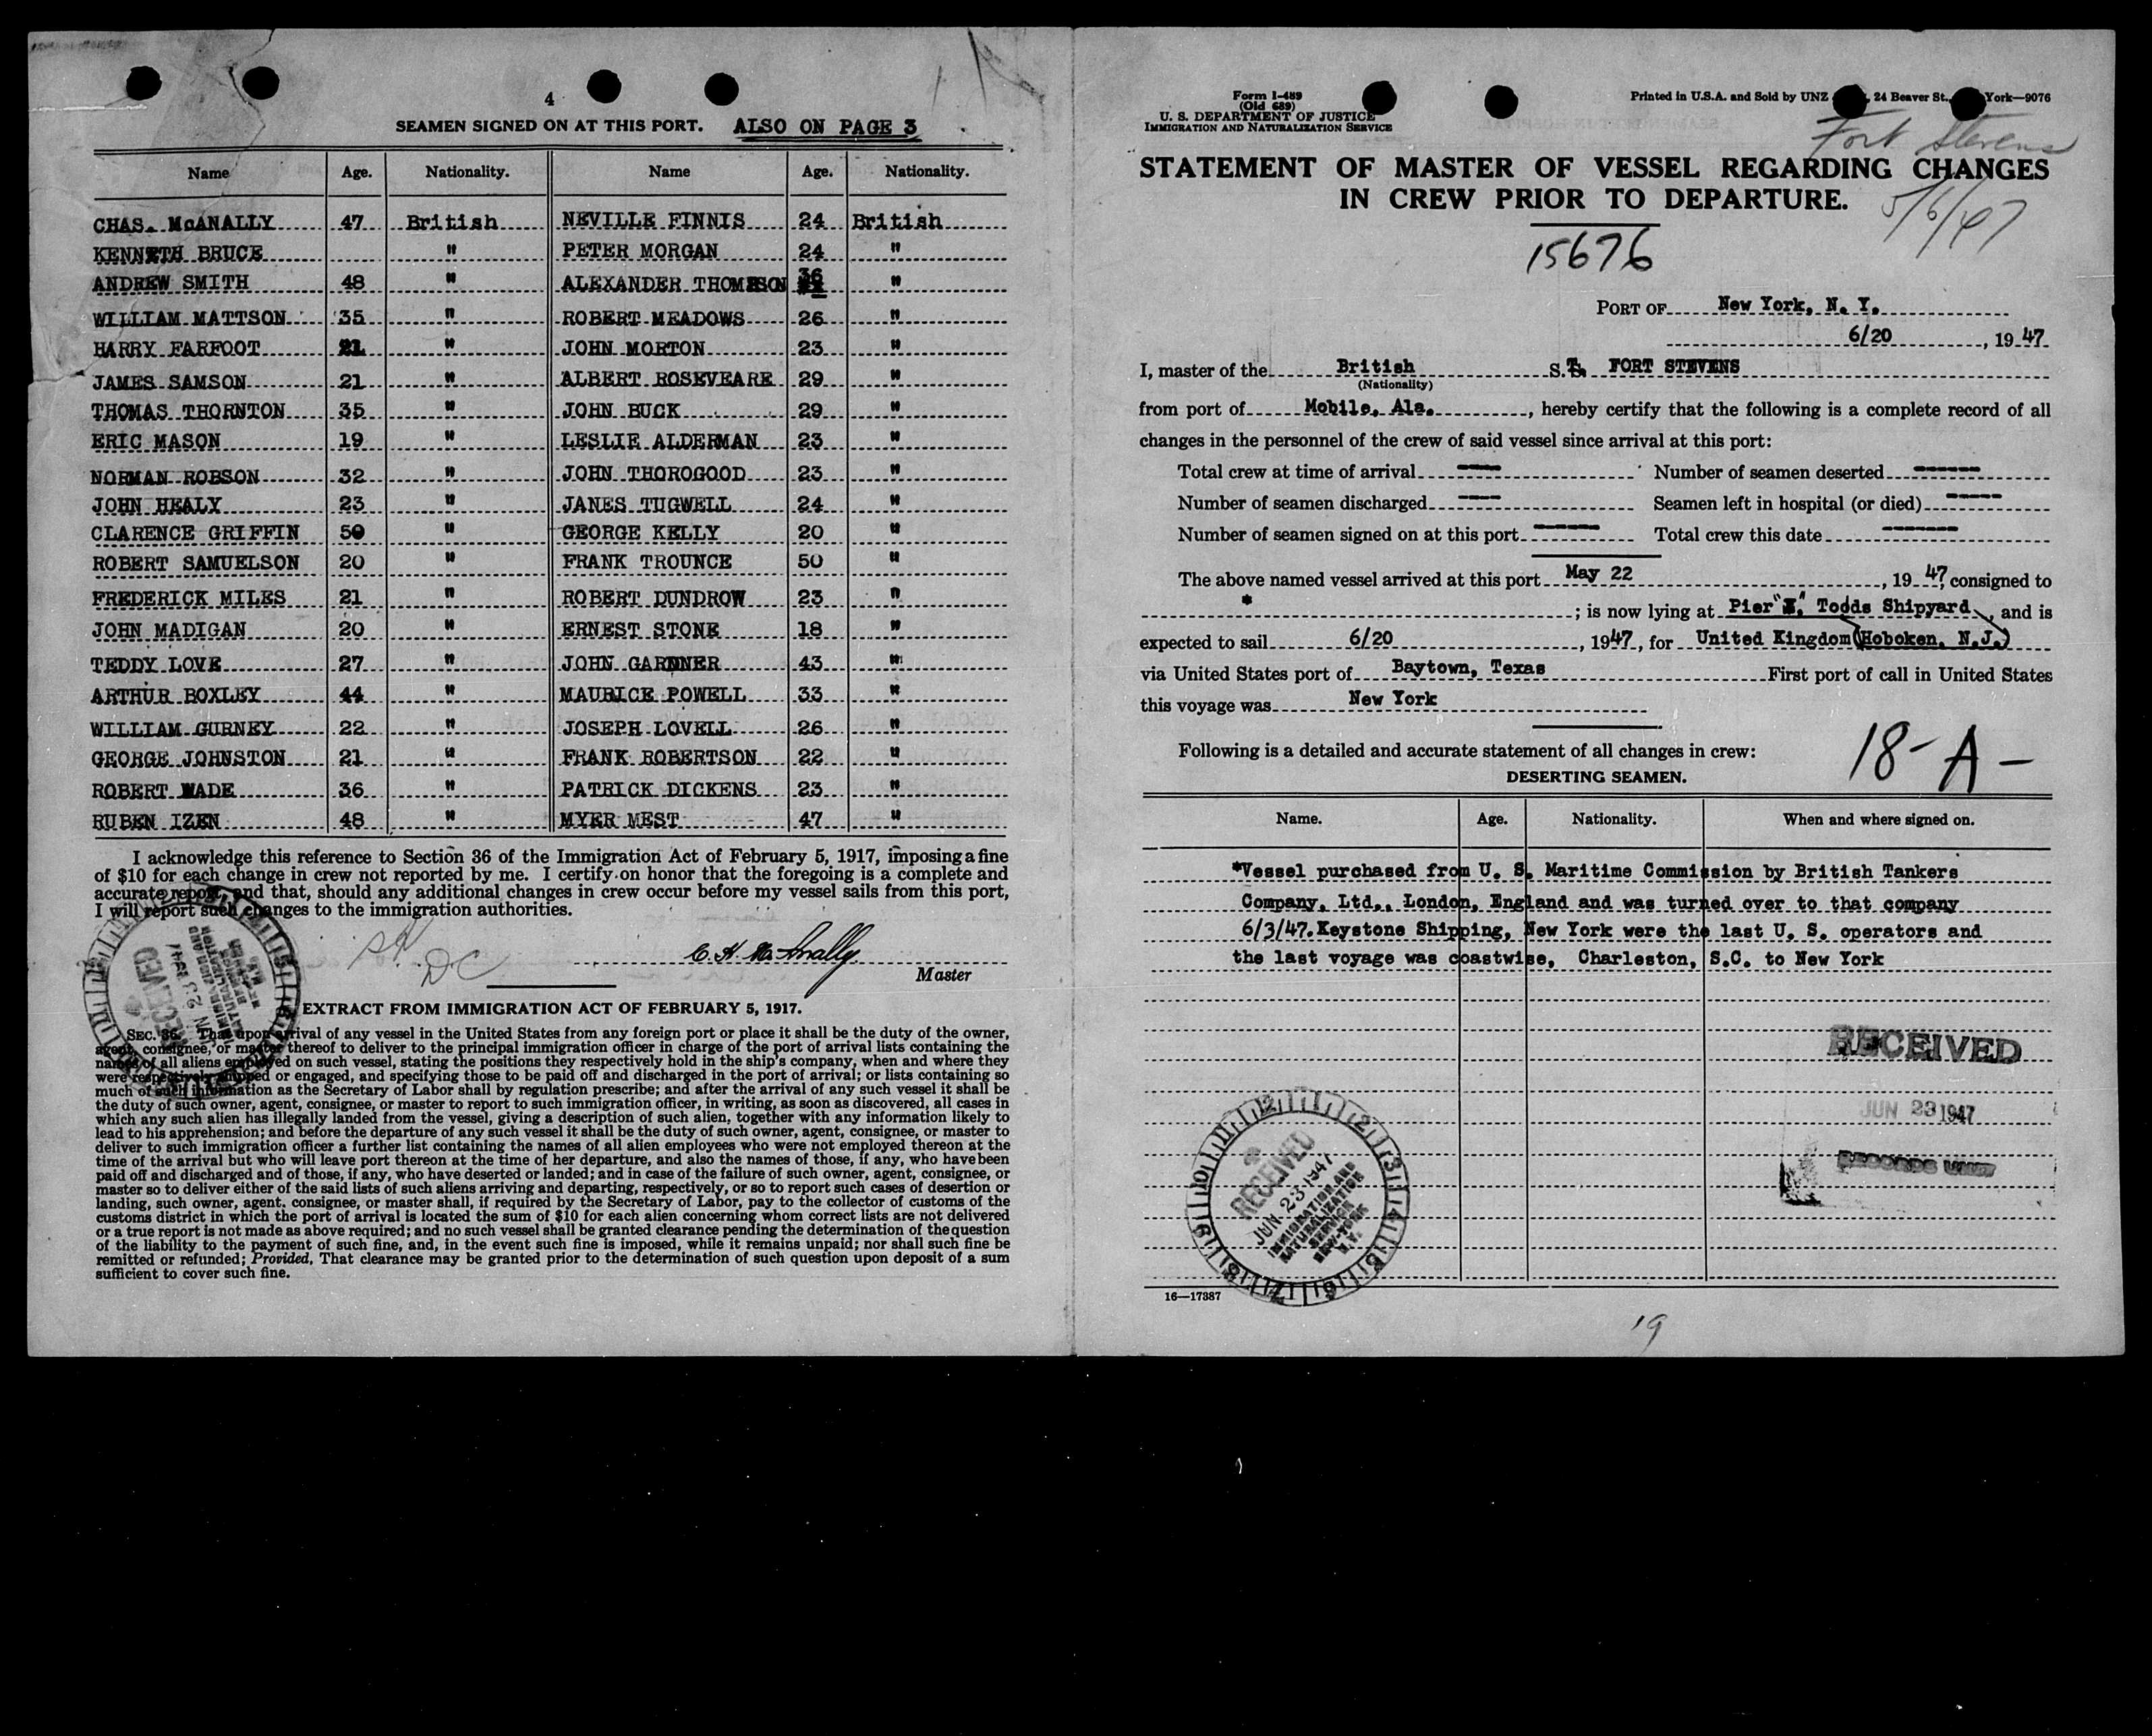 4
SEAMEN SIGNED ON AT THIS PORT. ALSO ON PAGE 3
Name Age. Nationality. Name Age. Nationality.
CHAS. McANALLY 47 British NEVILLE FINNIS 24 British
KENNETH BRUCE " PETER MORGAN 24 "
ANDREW SMITH 48 " ALEXANDER THOMPSON 36 "
WILLIAM MATTSON 35 " ROBERT MEADOWS 26 "
HARRY FARFOOT 21 " JOHN MORTON 23 "
JAMES SAMSON 21 " ALBERT ROSEVEARE 29 "
THOMAS THORNTON 35 " JOHN BUCK 29 "
ERIC MASON 19 " LESLIE ALDERMAN 23 "
NORMAN ROBSON 32 " JOHN THOROGOOD 23 "
JOHN HEALY 23 " JANES TUGWELL 24 "
CLARENCE GRIFFIN 50 " GEORGE KELLY 20 "
ROBERT SAMUELSON 20 " FRANK TROUNCE 50 "
FREDERICK MILES 21 " ROBERT DUNDROW 23 "
JOHN MADIGAN 20 " ERNEST STONE 18 "
TEDDY LOVE 27 " JOHN GARDNER 43 "
ARTHUR BOXLEY 44 " MAURICE POWELL 33 "
WILLIAM GURNEY 22 " JOSEPH LOVELL 26 "
GEORGE JOHNSTON 21 " FRANK ROBERTSON 22 "
ROBERT WADE 36 " PATRICK DICKENS 23 "
RUBEN IZEN 48 " MYER MEST 47 "
I acknowledge this reference to Section 36 of the Immigration Act of February 5, 1917, imposing a fine
of $10 for each change in crew not reported by me. I certify on honor that the foregoing is a complete and
accurate report, and that, should any additional changes in crew occur before my vessel sails from this port,
I will report such changes to the immigration authorities.
DC
C. H. McAnally
Master
EXTRACT FROM IMMIGRATION ACT OF FEBRUARY 5, 1917.
SEC. 36. That upon arrival of any vessel in the United States from any foreign port or place it shall be the duty of the owner,
agent, consignee, or master thereof to deliver to the principal immigration officer in charge of the port of arrival lists containing the
names of all aliens employed on such vessel, stating the positions they respectively hold in the ship's company, when and where they
were respectively shipped or engaged, and specifying those to be paid off and discharged in the port of arrival; or lists containing so
much of such information as the Secretary of Labor shall by regulation prescribe; and after the arrival of any such vessel it shall be
the duty of such owner, agent, consignee, or master to report to such immigration officer, in writing, as soon as discovered, all cases in
which any such alien has illegally landed from the vessel, giving a description of such alien, together with any information likely to
lead to his apprehension; and before the departure of any such vessel it shall be the duty of such owner, agent, consignee, or master to
deliver to such immigration officer a further list containing the names of all alien employees who were not employed thereon at the
time of the arrival but who will leave port thereon at the time of her departure, and also the names of those, if any, who have been
paid off and discharged and of those, if any, who have deserted or landed; and in case of the failure of such owner, agent, consignee, or
master so to deliver either of the said lists of such aliens arriving and departing, respectively, or so to report such cases of desertion or
landing, such owner, agent, consignee, or master shall, if required by the Secretary of Labor, pay to the collector of customs of the
customs district in which the port of arrival is located the sum of $10 for each alien concerning whom correct lists are not delivered
or a true report is not made as above required; and no such vessel shall be granted clearance pending the determination of the question
of the liability to the payment of such fine, and, in the event such fine is imposed, while it remains unpaid; nor shall such fine be
remitted or refunded; Provided, That clearance may be granted prior to the determination of such question upon deposit of a sum
sufficient to cover such fine.
Form I-489
(Old 689)
U. S. DEPARTMENT OF JUSTICE
IMMIGRATION AND NATURALIZATION SERVICE
Printed in U.S.A. and Sold by UNZ 24 Beaver St., York—9076
Fort Stevens
STATEMENT OF MASTER OF VESSEL REGARDING CHANGES
IN CREW PRIOR TO DEPARTURE.
5/6/47
15676
PORT OF New York, N. Y.
6/20, 1947
I, master of the British S.T. FORT STEVENS
(Nationality)
from port of Mobile, Ala., hereby certify that the following is a complete record of all
changes in the personnel of the crew of said vessel since arrival at this port:
Total crew at time of arrival ---- Number of seamen deserted ------
Number of seamen discharged ---- Seamen left in hospital (or died) -----
Number of seamen signed on at this port ------ Total crew this date -------
The above named vessel arrived at this port May 22, 1947, consigned to
* ; is now lying at Pier "I," Todds Shipyard, and is
expected to sail 6/20, 1947, for United Kingdom (Hoboken, N.J.)
via United States port of Baytown, Texas First port of call in United States
this voyage was New York
Following is a detailed and accurate statement of all changes in crew:
18-A-
DESERTING SEAMEN.
Name. Age. Nationality. When and where signed on.
*Vessel purchased from U. S. Maritime Commission by British Tankers
Company, Ltd., London, England and was turned over to that company
6/3/47. Keystone Shipping, New York were the last U. S. operators and
the last voyage was coastwise, Charleston, S.C. to New York
RECEIVED
JUN 23 1947
RECORDS UNIT
RECEIVED
JUN 23 1947
IMMIGRATION AND
NATURALIZATION
SERVICE
NEW YORK
N.Y.
16—17387
19